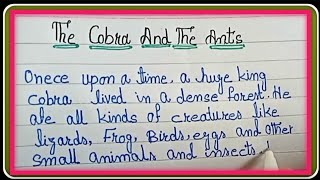 The Cobra And The Ants
Onece upon a time, a huge king
cobra lived in a dense forest. He
ate all kinds of creatures like
lizards, Frog, Birds, eggs and other
small animals and insects